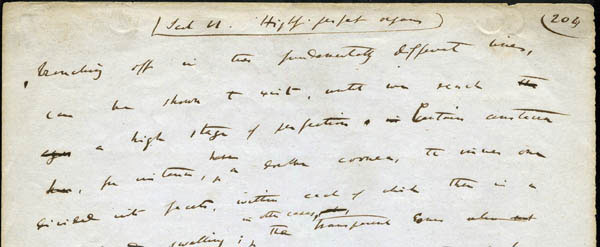 Sect VI. Highly perfect organs
204
branching off in two fundamentally different lines,
can be shown to exist, until we reach the
a high stage of perfection. in Certain crustacea
have, for instance, a double cornea, the inner one
divided into facets, within each of which there is a
in other cases,
swelling; the transparent cones